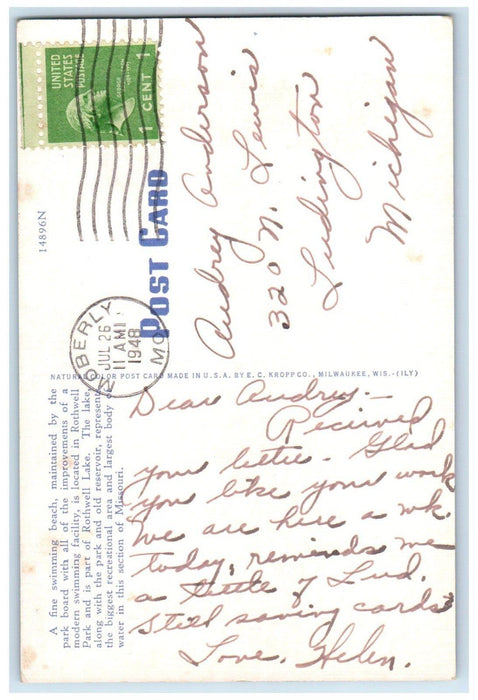 UNITED
STATES
POSTAGE
1 CENT 1
14896N
POST CARD
MOBERLY
JUL 26
11 AM
1948
MO.
Audrey Anderson
320 N. Lewis
Ludington
Michigan
NATURAL COLOR POST CARD MADE IN U.S.A. BY E. C. KROPP CO., MILWAUKEE, WIS.-(ILY)
A fine swimming beach, maintained by the
park board with all of the improvements of a
modern swimming facility, is located in Rothwell
Park and is part of Rothwell Lake. The lake,
along with the park and old reservoir, represents
the biggest recreational area and largest body of
water in this section of Missouri.
Dear Audrey -
Recieved
your letter - Glad
you like your work
We are here a wk.
today, reminds me
a little of Lud.
Still saving cards
Love, Helen.